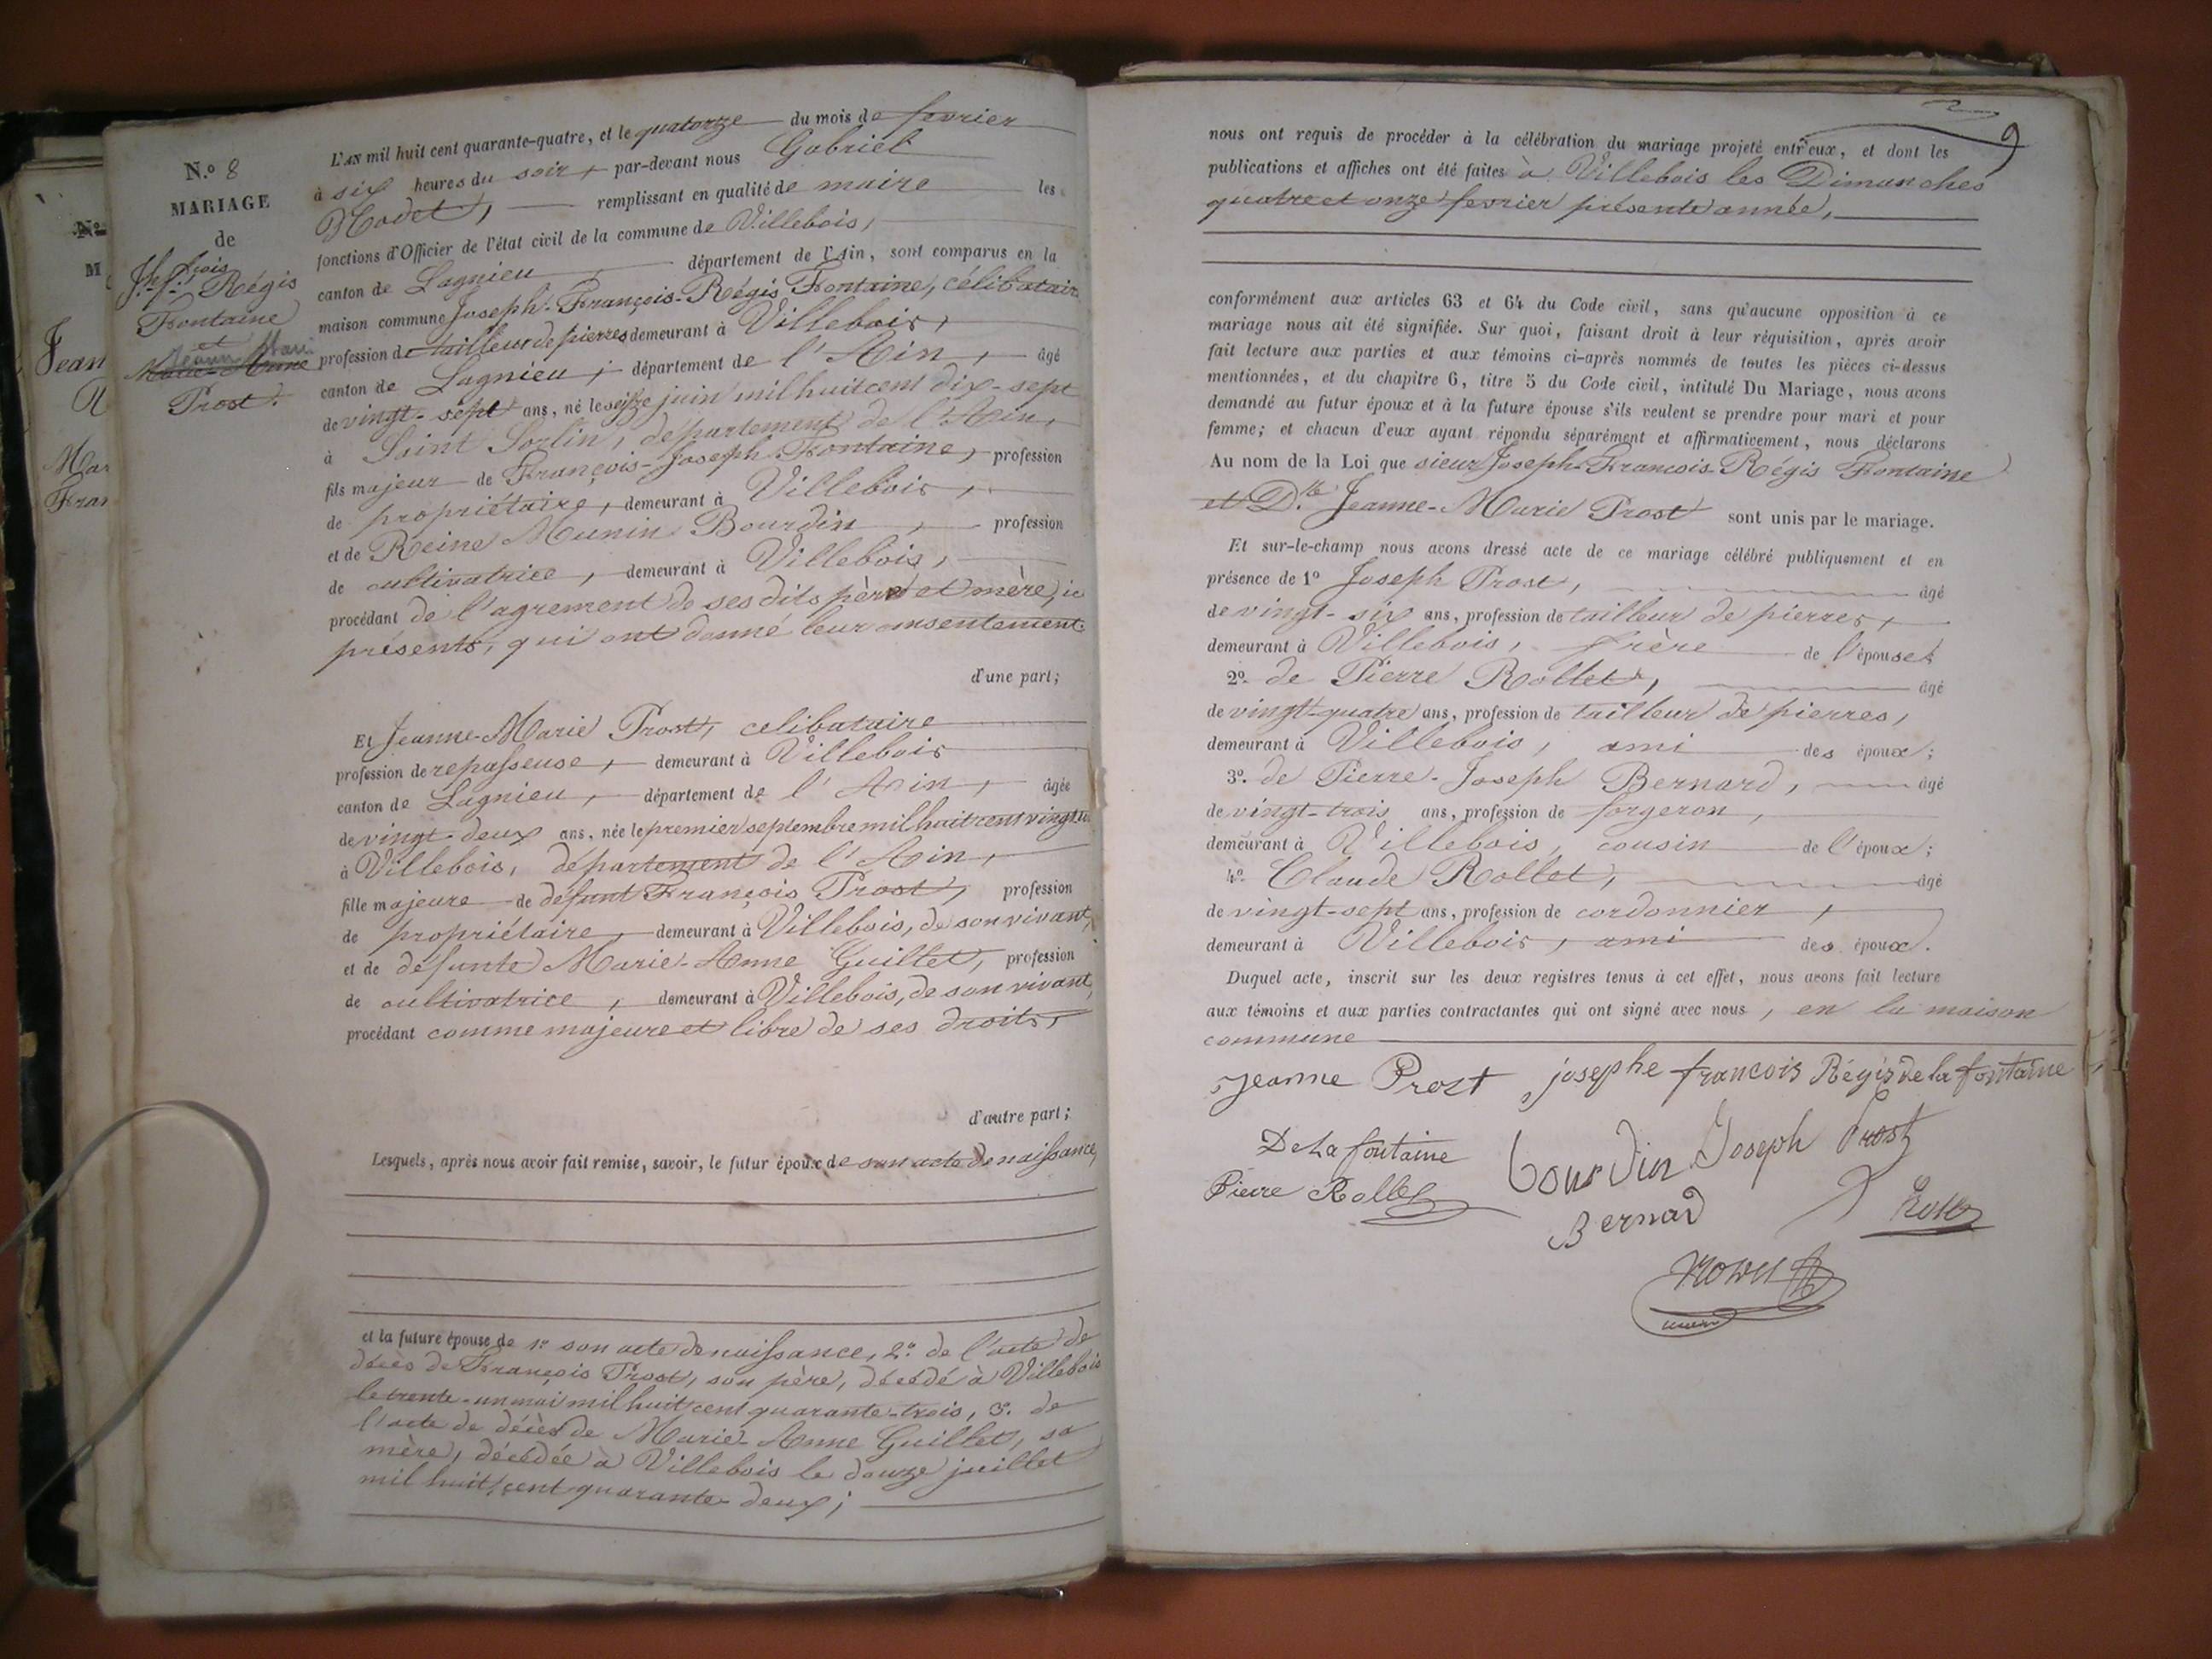 N.º 8
MARIAGE
de
Jh. f.çois Régis
Fontaine
et
Jeanne Marie
Marie-Anne
Prost.
L'AN mil huit cent quarante-quatre, et le quatorze du mois de fevrier
à six heures du soir, par-devant nous Gabriel
Nodet, remplissant en qualité de maire les
fonctions d'Officier de l'état civil de la commune de Villebois,
canton de Lagnieu, département de l'Ain, sont comparus en la
maison commune Joseph-François-Régis Fontaine, célibataire
profession de tailleur de pierres demeurant à Villebois,
canton de Lagnieu, département de l'Ain, âgé
de vingt-sept ans, né le seize juin mil huit cent dix-sept
à Saint Sorlin, département de l'Ain,
fils majeur de François-Joseph Fontaine, profession
de propriétaire, demeurant à Villebois,
et de Reine Munin Bourdin, profession
de cultivatrice, demeurant à Villebois,
procédant de l'agrement de ses dits père et mère, ici
présents, qui ont donné leur consentement
d'une part;
Et Jeanne-Marie Prost, celibataire
profession de repasseuse, demeurant à Villebois
canton de Lagnieu, département de l'Ain, âgée
de vingt-deux ans, née le premier septembre mil huit cent vingt un
à Villebois, département de l'Ain,
fille majeure de défunt François Prost, profession
de propriétaire, demeurant à Villebois, de son vivant,
et de défunte Marie-Anne Guillet, profession
de cultivatrice, demeurant à Villebois, de son vivant,
procédant comme majeure et libre de ses droits,
d'autre part;
Lesquels, après nous avoir fait remise, savoir, le futur époux de son acte de naissance,
et la future épouse de 1.º son acte de naissance, 2.º de l'acte de
décès de François Prost, son père, décédé à Villebois
le trente-un mai mil huit cent quarante-trois, 3.º de
l'acte de décès de Marie-Anne Guillet, sa
mère, décédée à Villebois le douze juillet
mil huit cent quarante-deux;
9
nous ont requis de procéder à la célébration du mariage projeté entr'eux, et dont les
publications et affiches ont été faites à Villebois les Dimanches
quatre et onze fevrier présente année,
conformément aux articles 63 et 64 du Code civil, sans qu'aucune opposition à ce
mariage nous ait été signifiée. Sur quoi, faisant droit à leur réquisition, après avoir
fait lecture aux parties et aux témoins ci-après nommés de toutes les pièces ci-dessus
mentionnées, et du chapitre 6, titre 5 du Code civil, intitulé Du Mariage, nous avons
demandé au futur époux et à la future épouse s'ils veulent se prendre pour mari et pour
femme; et chacun d'eux ayant répondu séparément et affirmativement, nous déclarons
Au nom de la Loi que sieur Joseph-François-Régis Fontaine
et D.lle Jeanne-Marie Prost sont unis par le mariage.
Et sur-le-champ nous avons dressé acte de ce mariage célébré publiquement et en
présence de 1º Joseph Prost, âgé
de vingt-six ans, profession de tailleur de pierres,
demeurant à Villebois, frère de l'épouse;
2º. de Pierre Rollet, âgé
de vingt-quatre ans, profession de tailleur de pierres,
demeurant à Villebois, ami des époux;
3º. de Pierre-Joseph Bernard, âgé
de vingt-trois ans, profession de forgeron,
demeurant à Villebois, cousin de l'époux;
4º. Claude Rollet, âgé
de vingt-sept ans, profession de cordonnier,
demeurant à Villebois, ami des époux.
Duquel acte, inscrit sur les deux registres tenus à cet effet, nous avons fait lecture
aux témoins et aux parties contractantes qui ont signé avec nous, en la maison
commune
Jeanne Prost josephe francois Régis de la fontaine
De La fontaine bourdin Joseph Prost
Pierre Rollet Bernard